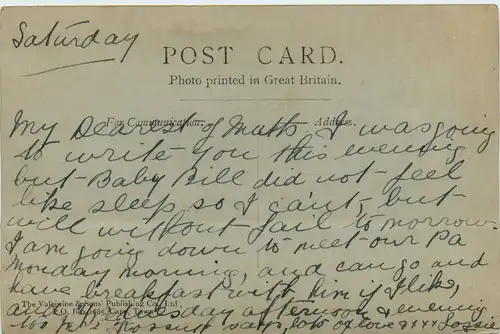 Saturday
POST CARD.
Photo printed in Great Britain.
For Communication. Address.
My Dearest of Mutts. I was going
to write you this evening
but Baby Bill did not feel
like sleep so I can't, but
will without fail to morrow.
I am going down to meet our Pa
Monday morning, and can go and
have breakfast with him if I like,
The Valentine & Sons Publishing Co., Ltd.,
and Tuesday afternoon & evening
P.O. Box 1685, Cape Town
too says lots of love xxx